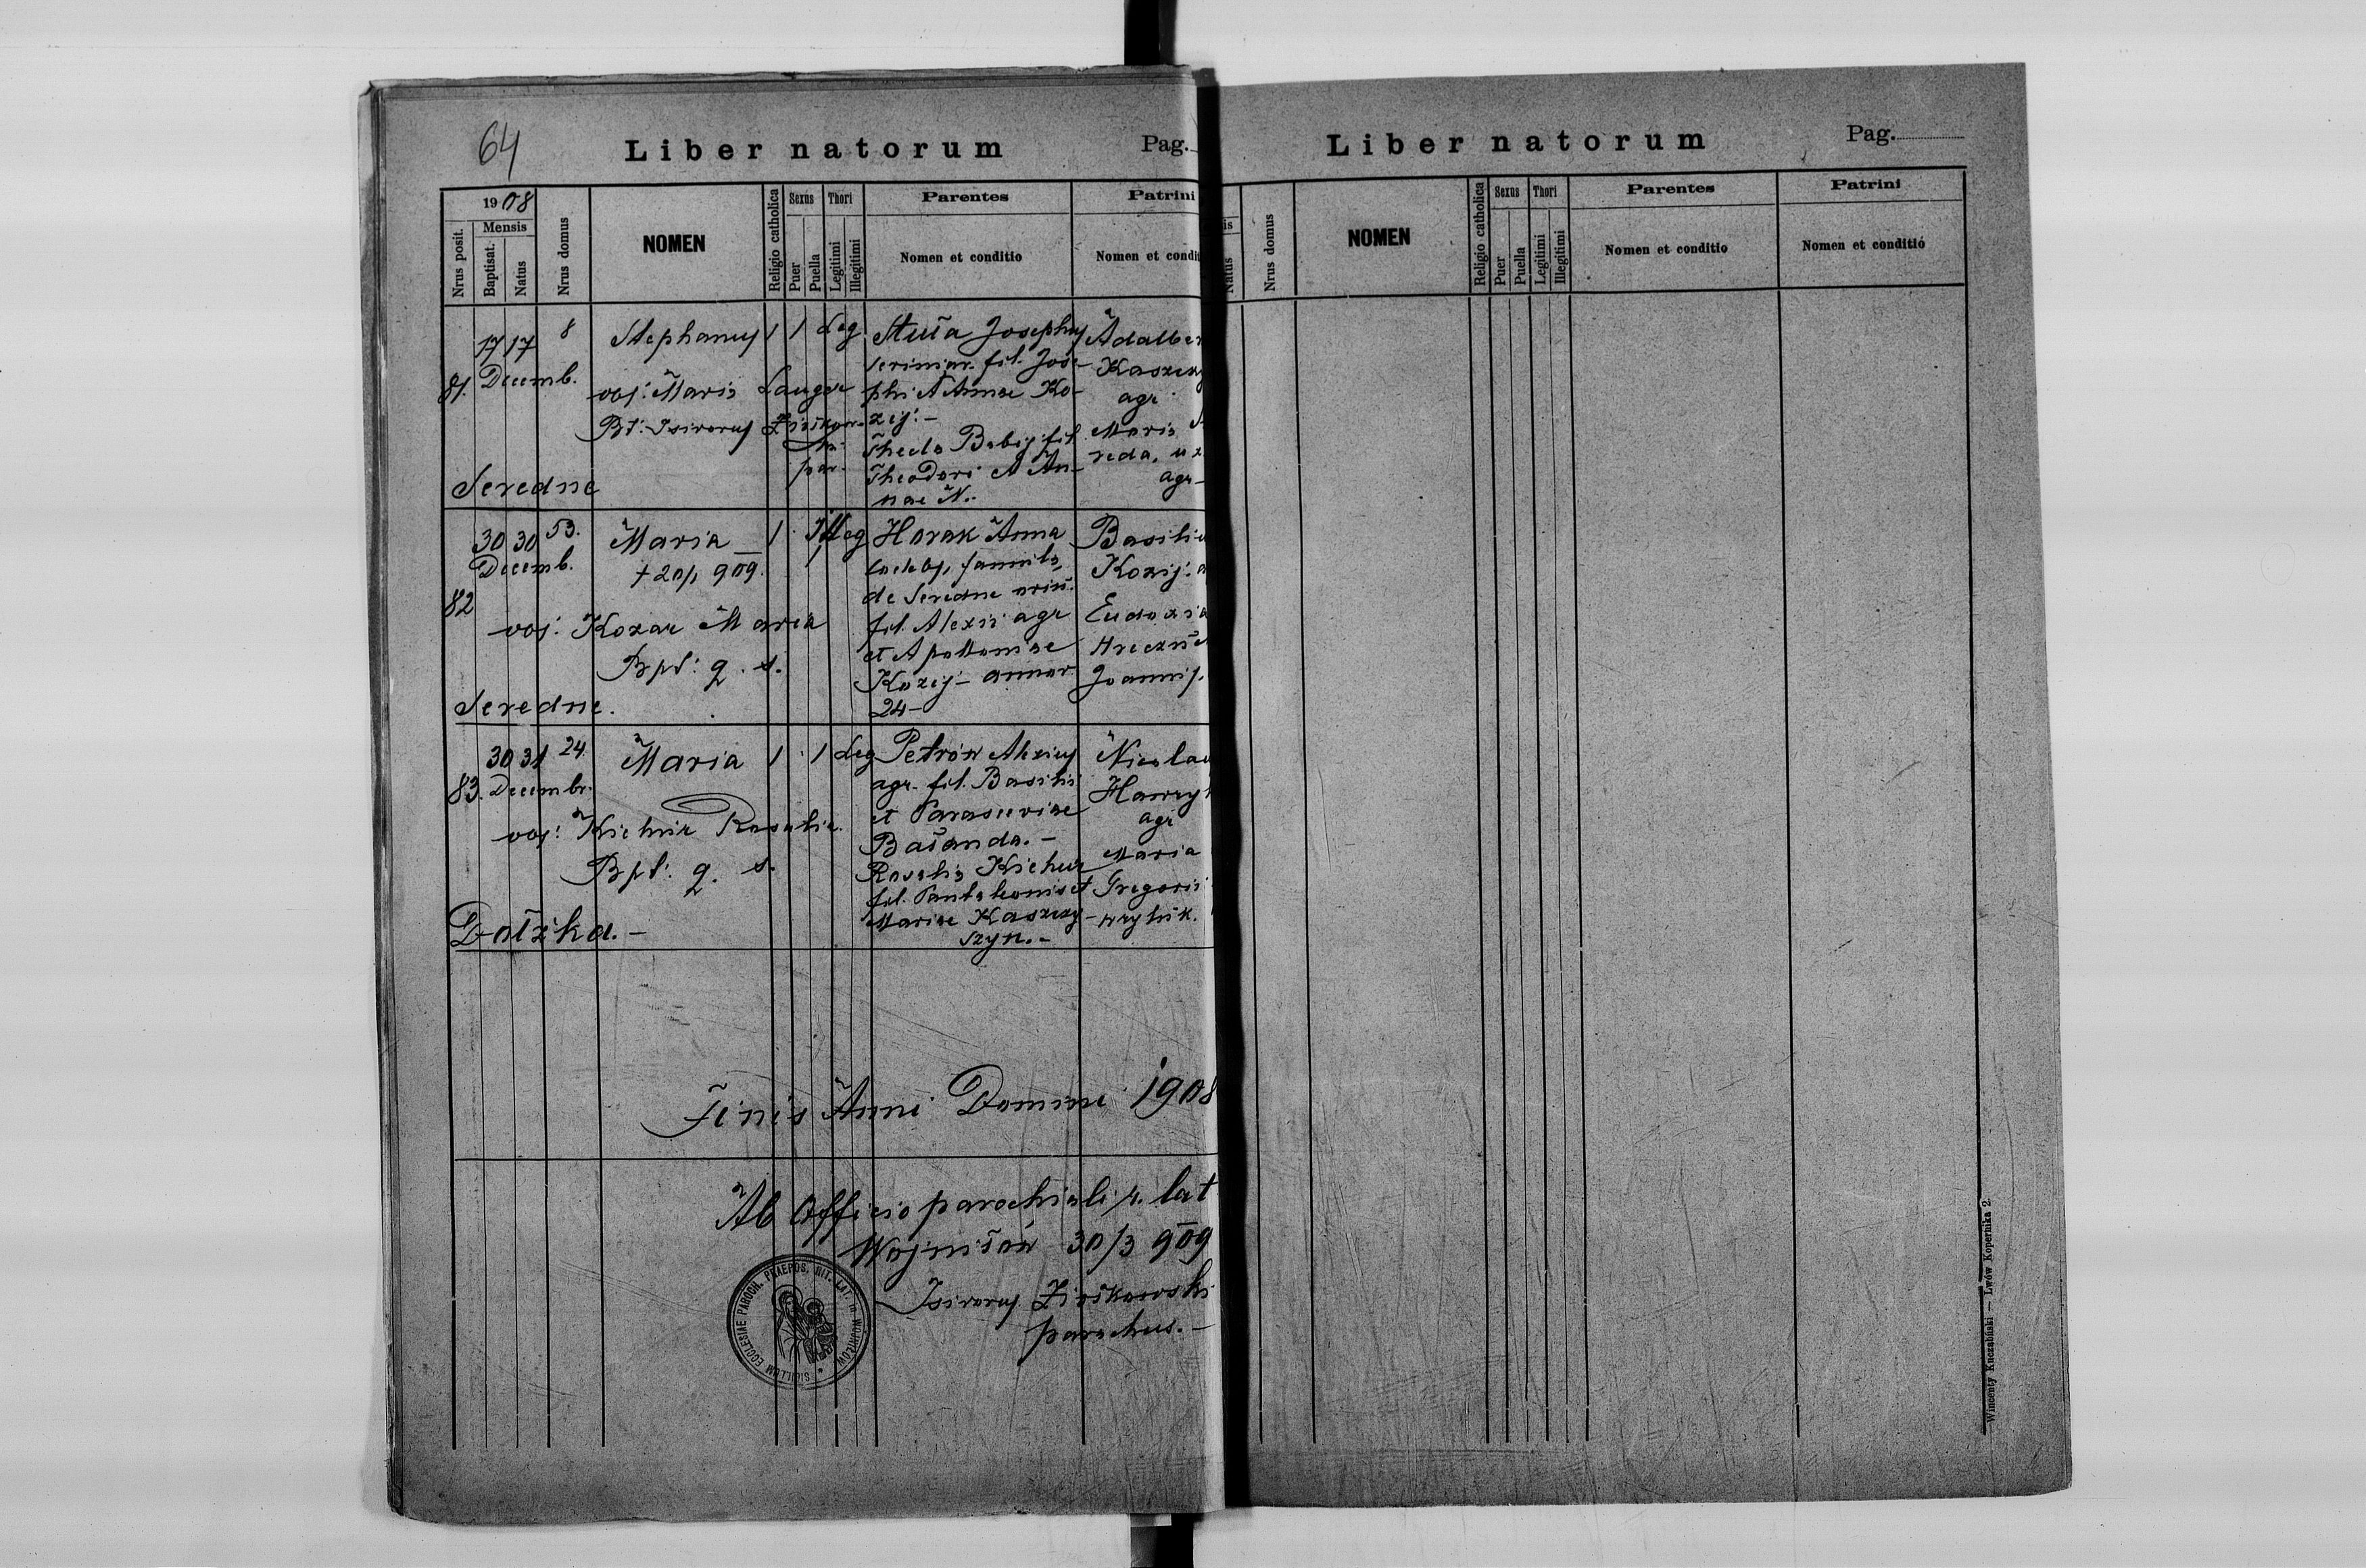 64
Liber natorum
Pag.
1908
Nrus posit.
Mensis
Baptisat.
Natus
Nrus domus
NOMEN
Religio catholica
Sexus
Puer
Puella
Thori
Legitimi
Illegitimi
Parentes
Nomen et conditio
Patrini
Nomen et condit
81.
17 17
Decemb.
8
Stephanus
1 1 Leg.
obs: Maria Langer
Bt: Isidorus
par.
Seredne
Josephus
fil. Jose-
phi et Annae Ko-
zij. -
Thecla Babij fil.
Theodori et An-
nae N.
Adalber
agr
Maria
reda, ux
agr-
82
30 30
Decemb.
53.
Maria
1. Illeg
+ 20/1 909.
obs: Kozar Maria
Bpt: q. s.
Seredne.
Horak Anna
famula
de Seredne
fil. Alexii agr
et Apolloniae
Kozij - annor
24-
Basiliu
Kozij: a
Eudoxia
Joannis.
83.
30 31
Decembr.
24.
Maria
1 . 1 Leg
obs: Kichur Rosalia.
Bpt: q. s.
Dołżka. -
Petrów Alexius
agr. fil. Basilii
et Parasceviae
Bałanda. -
Rosalia Kichur
fil. Pantaleonis et
Mariae Kaszczy-
szyn. -
Nicolau
Hawry
agr
Maria
Gregorii
wryluk.
Finis Anni Domini 1908
Ab Officio parochiali r. lat
Wojniłów 30/3 909
Isidorus Ziółkowski
parochus. -
SIGILLUM ECCLESIAE PAROCH. PRAEPOS. RIT. LAT. in WOJNIŁÓW
Liber natorum
Pag.
is
Natus
Nrus domus
NOMEN
Religio catholica
Sexus
Puer
Puella
Thori
Legitimi
Illegitimi
Parentes
Nomen et conditio
Patrini
Nomen et conditió
Wincenty Kuczabiński — Lwów Kopernika 2.